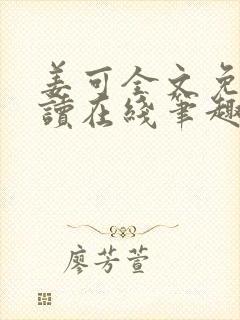 姜可全文免
讀在綫筆趣
廖芳萱